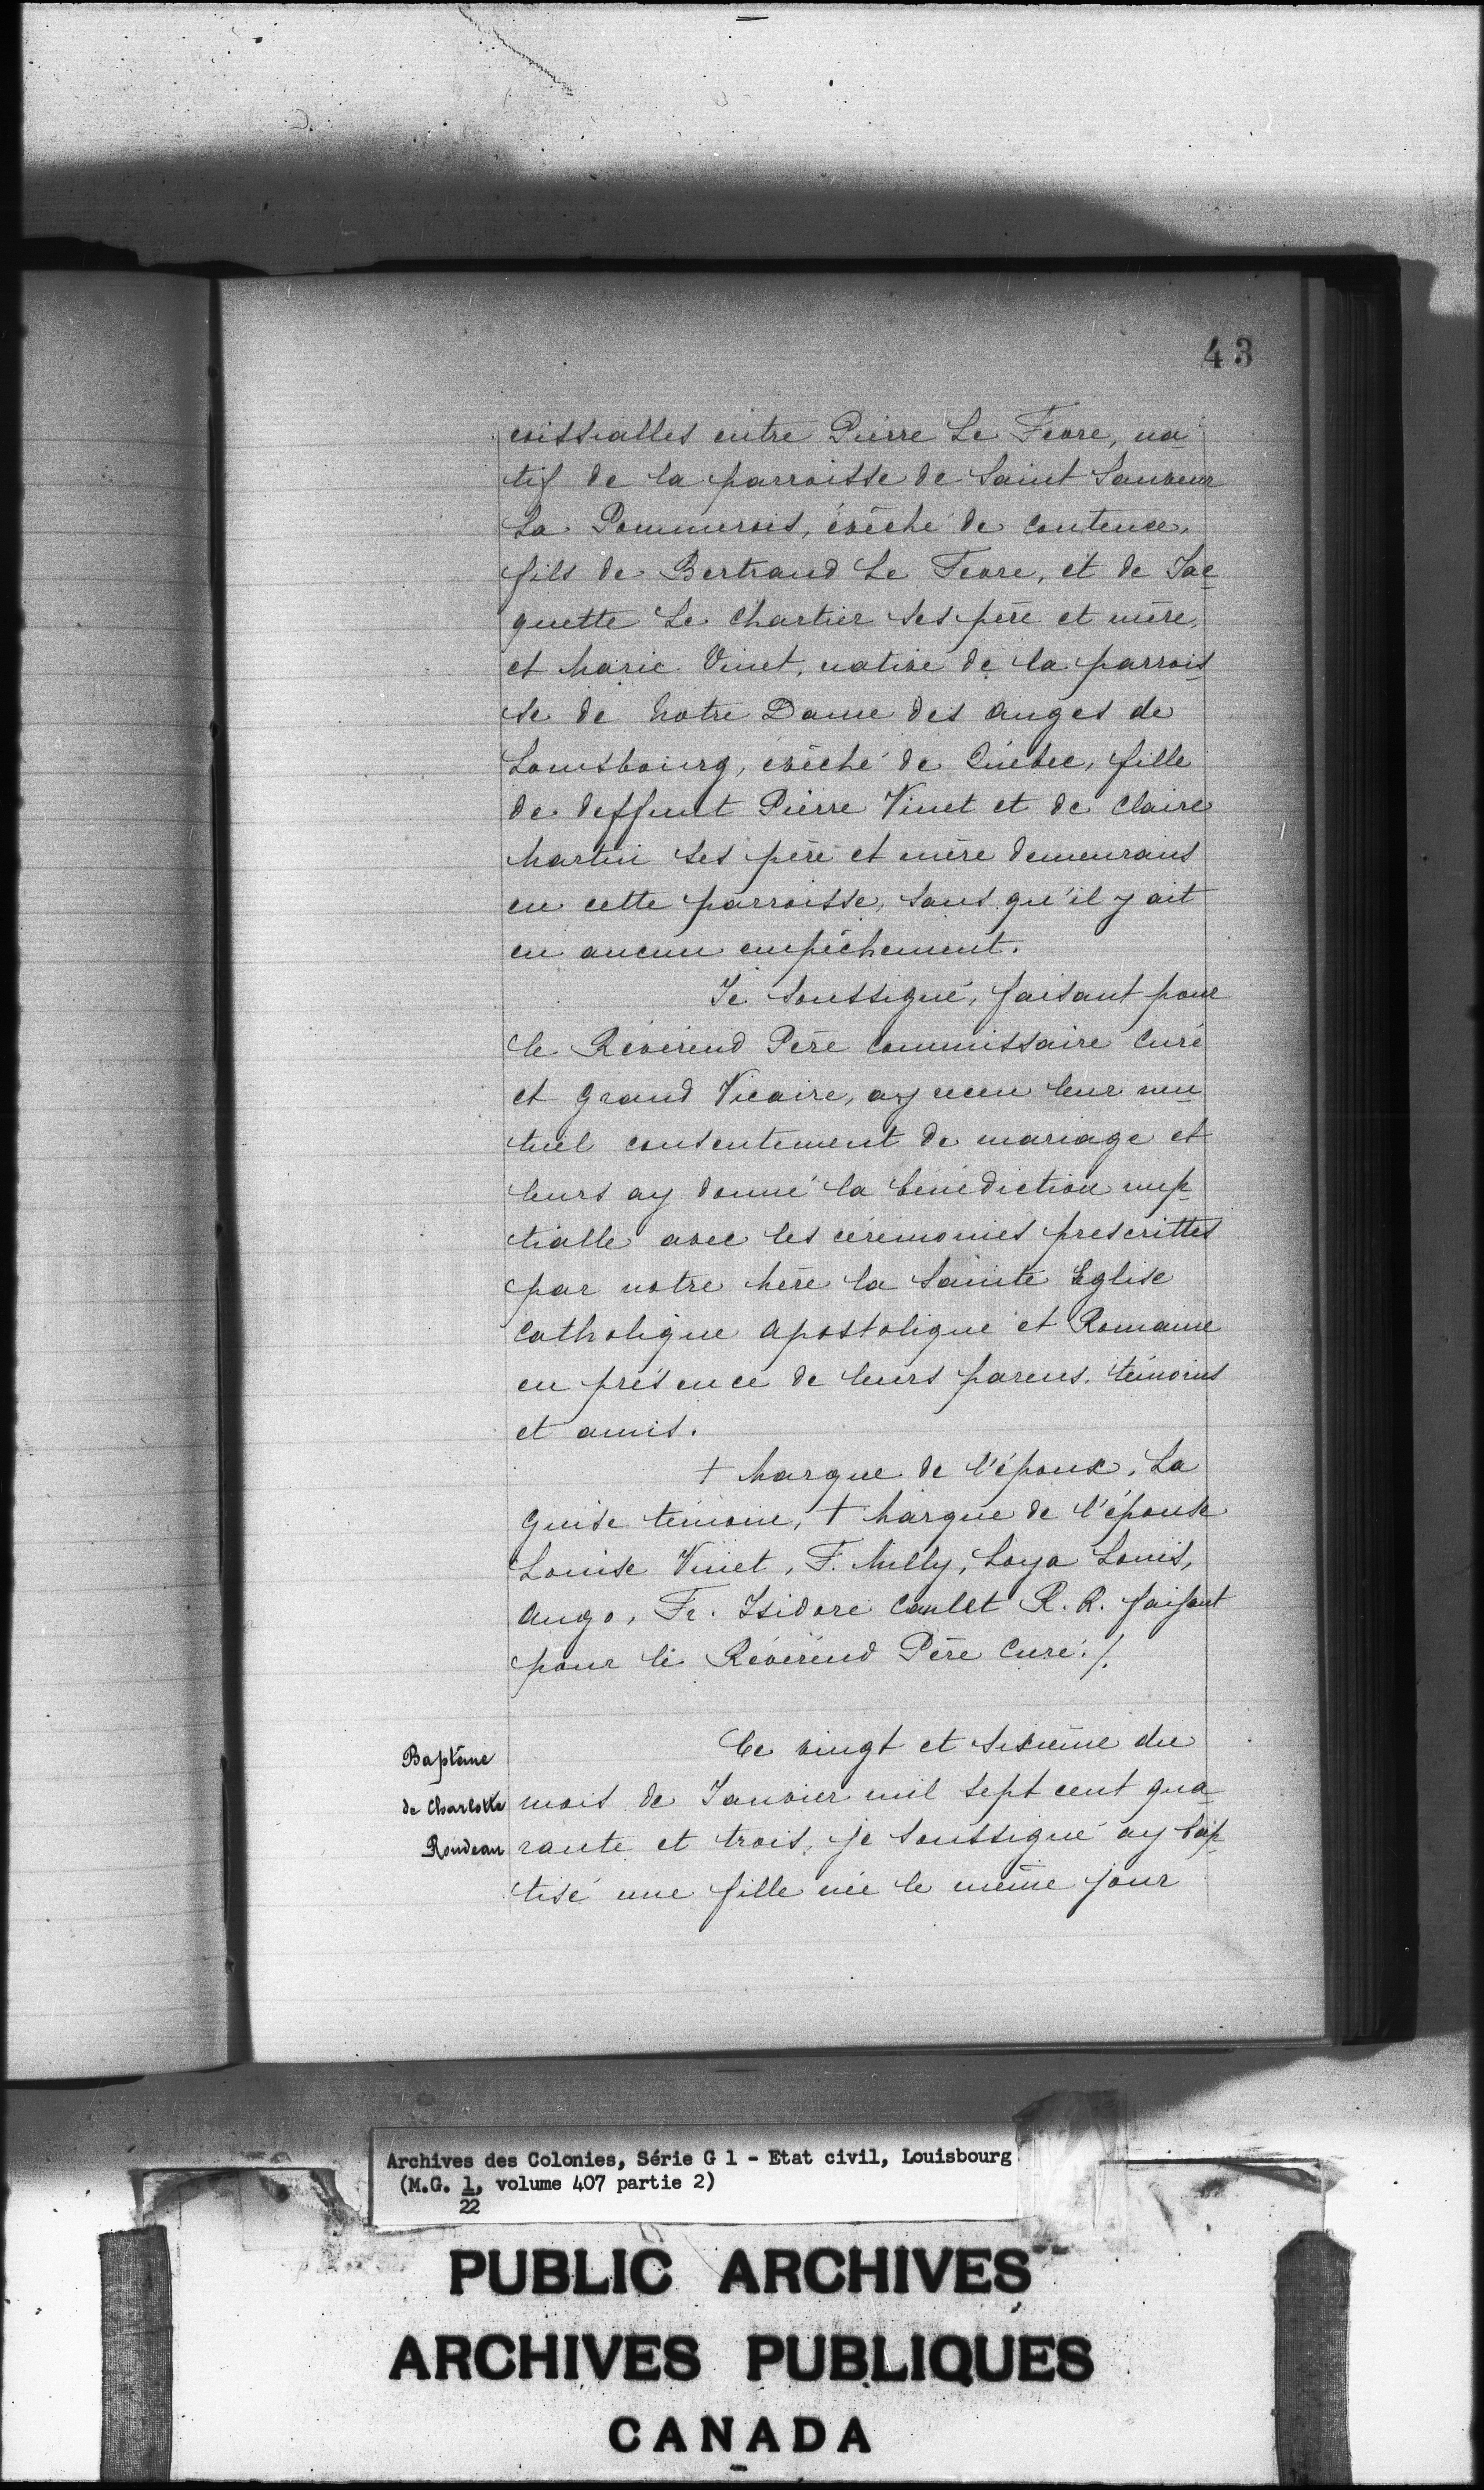 43
roissialles entre Pierre Le Fevre, na
tif de la parroisse de Saint Sauveur
La Pommerois, évêché de Coutence,
fils de Bertrand Le Fevre, et de Jac
quette Le Chartier ses père et mère,
et Marie Vinet, native de la parrois
se de Notre Dame des Anges de
Louisbourg, évêché de Québec, fille
de deffunt Pierre Vinet et de Claire
Martin ses père et mère demeurans
en cette parroisse, sans qu'il y ait
eu aucun empêchement.
Je soussigné, faisant pour
le Révérend Père Commissaire Curé
et Grand Vicaire, ay receu leur mu
tuel consentement de mariage et
leurs ay donné la bénédiction nup
tialle avec les cérémonies prescrittes
par notre Mère la Sainte Eglise
Catholique Apostolique et Romaine
en présence de leurs parens, témoins
et amis.
+ Marque de l'époux, La
Guise témoin, + Marque de l'épouse
Louise Vinet, F. Milly, Loya Louis,
Ango, Fr. Isidore Caulet R. R. faisant
pour le Révérend Père Curé./.
Baptême
de Charlotte
Rondeau
Le vingt et sixième du
mois de Janvier mil sept cent qua
rante et trois, je soussigné ay bap
tisé une fille née le même jour
Archives des Colonies, Série G 1 - Etat civil, Louisbourg
(M.G. 1, volume 407 partie 2)
22
PUBLIC ARCHIVES
ARCHIVES PUBLIQUES
CANADA